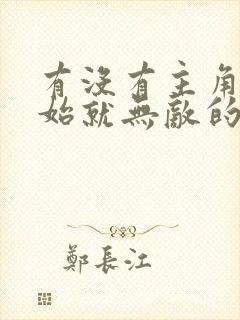 有沒有主角
始就無敵的
鄭長江